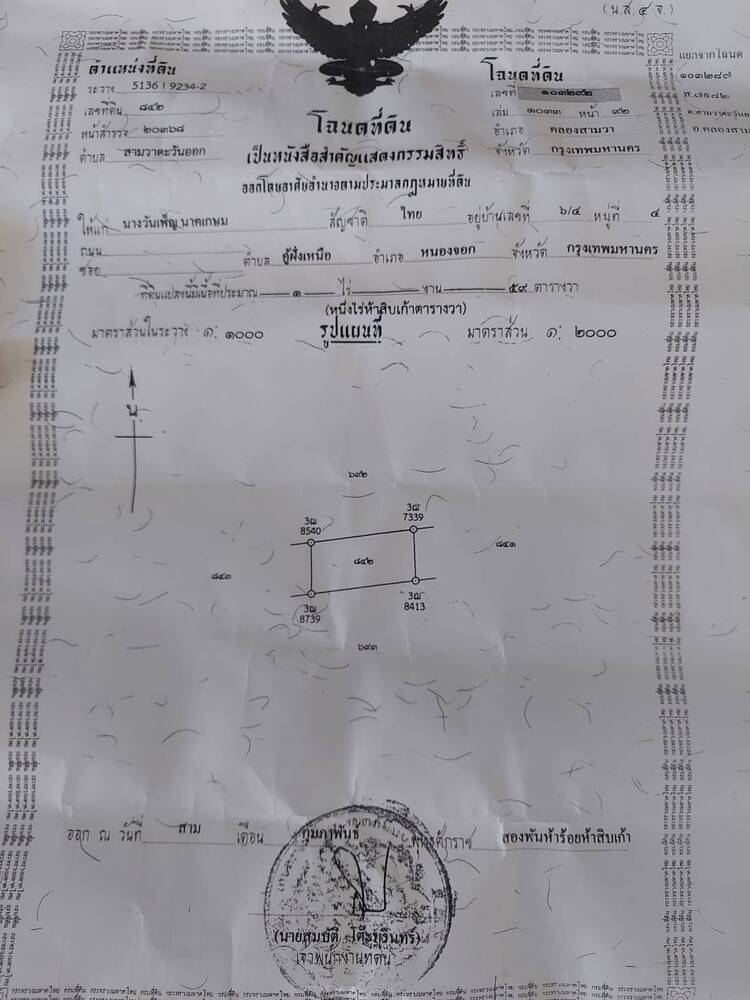 (น.ส. ๔ จ.)
ตำแหน่งที่ดิน
ระวาง 5136 I 9234-2
เลขที่ดิน ๘๔๒
หน้าสำรวจ ๒๐๓๖๘
ตำบล สามวาตะวันออก
โฉนดที่ดิน
เลขที่ ๑๐๓๒๙๒
เล่ม ๑๐๓๓ หน้า ๙๒
อำเภอ คลองสามวา
จังหวัด กรุงเทพมหานคร
แยกจากโฉนด
๑๐๓๒๘๗
โฉนดที่ดิน
เป็นหนังสือสำคัญแสดงกรรมสิทธิ์
ออกโดยอาศัยอำนาจตามประมวลกฎหมายที่ดิน
ให้แก่ นางวันเพ็ญ นาคเกษม สัญชาติ ไทย อยู่บ้านเลขที่ ๖/๔ หมู่ที่ ๔
ถนน
ซอย ตำบล คู้ฝั่งเหนือ อำเภอ หนองจอก จังหวัด กรุงเทพมหานคร
ที่ดินแปลงนี้มีเนื้อที่ประมาณ ๑ ไร่ - งาน ๕๙ ตารางวา
(หนึ่งไร่ห้าสิบเก้าตารางวา)
มาตราส่วนในระวาง ๑: ๑๐๐๐ รูปแผนที่ มาตราส่วน ๑: ๒๐๐๐
น.
๖๙๒
3ฌ
8540
3ฌ
7339
๘๔๓
๘๔๒
๘๔๑
3ฌ
8739
3ฌ
8413
๖๙๓
ออก ณ วันที่ สาม เดือน กุมภาพันธ์ พุทธศักราช สองพันห้าร้อยห้าสิบเก้า
(นายสมบัติ
เจ้าพนักงานที่ดิน